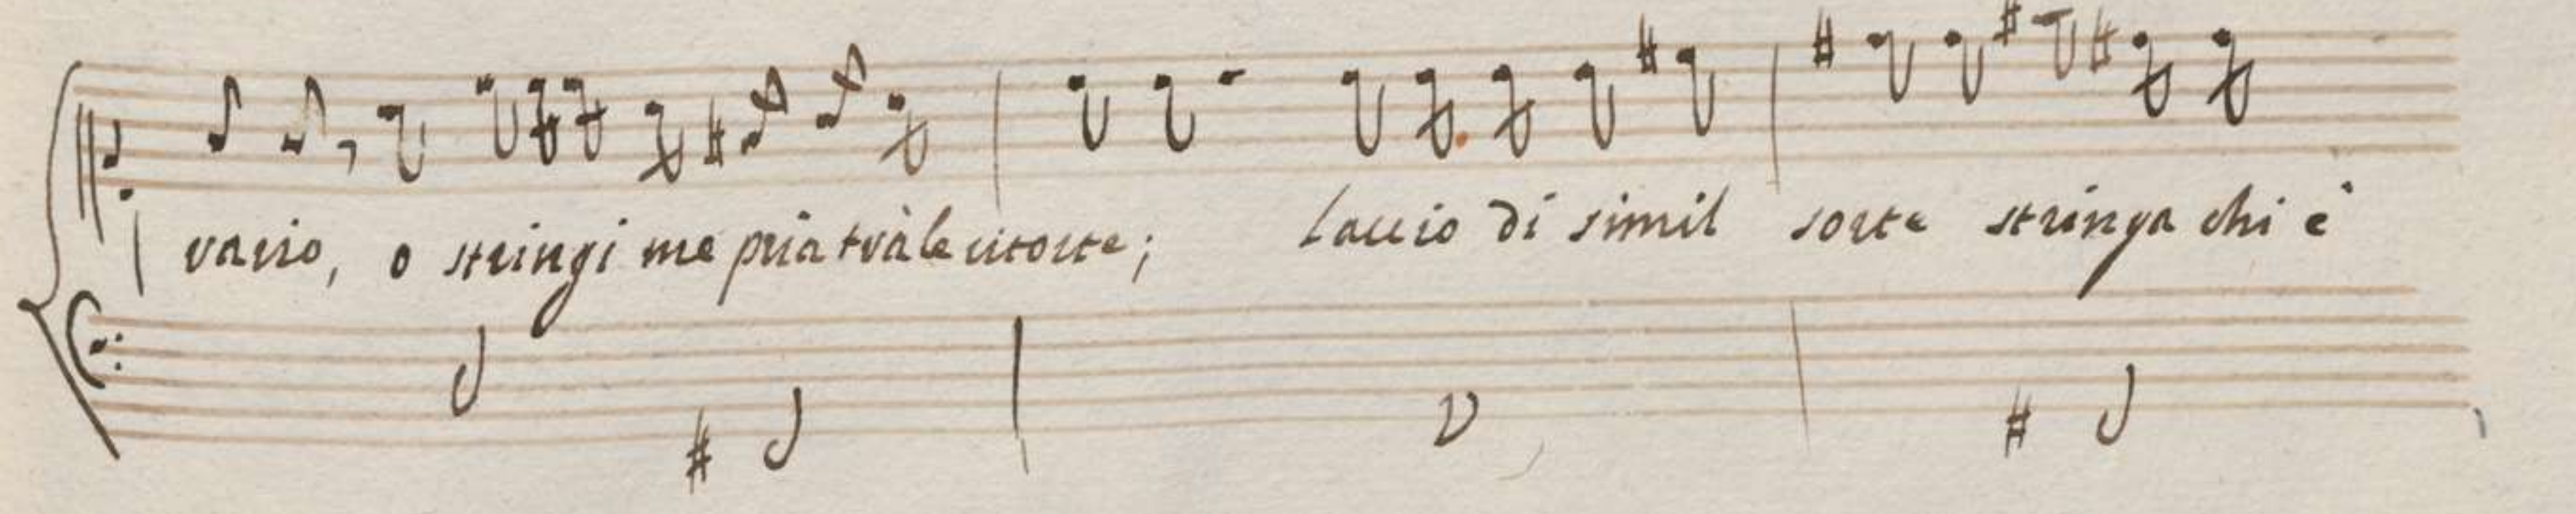 vario, o stringi me pria trà le ritorte; Laccio di simil sorte stringa chi è